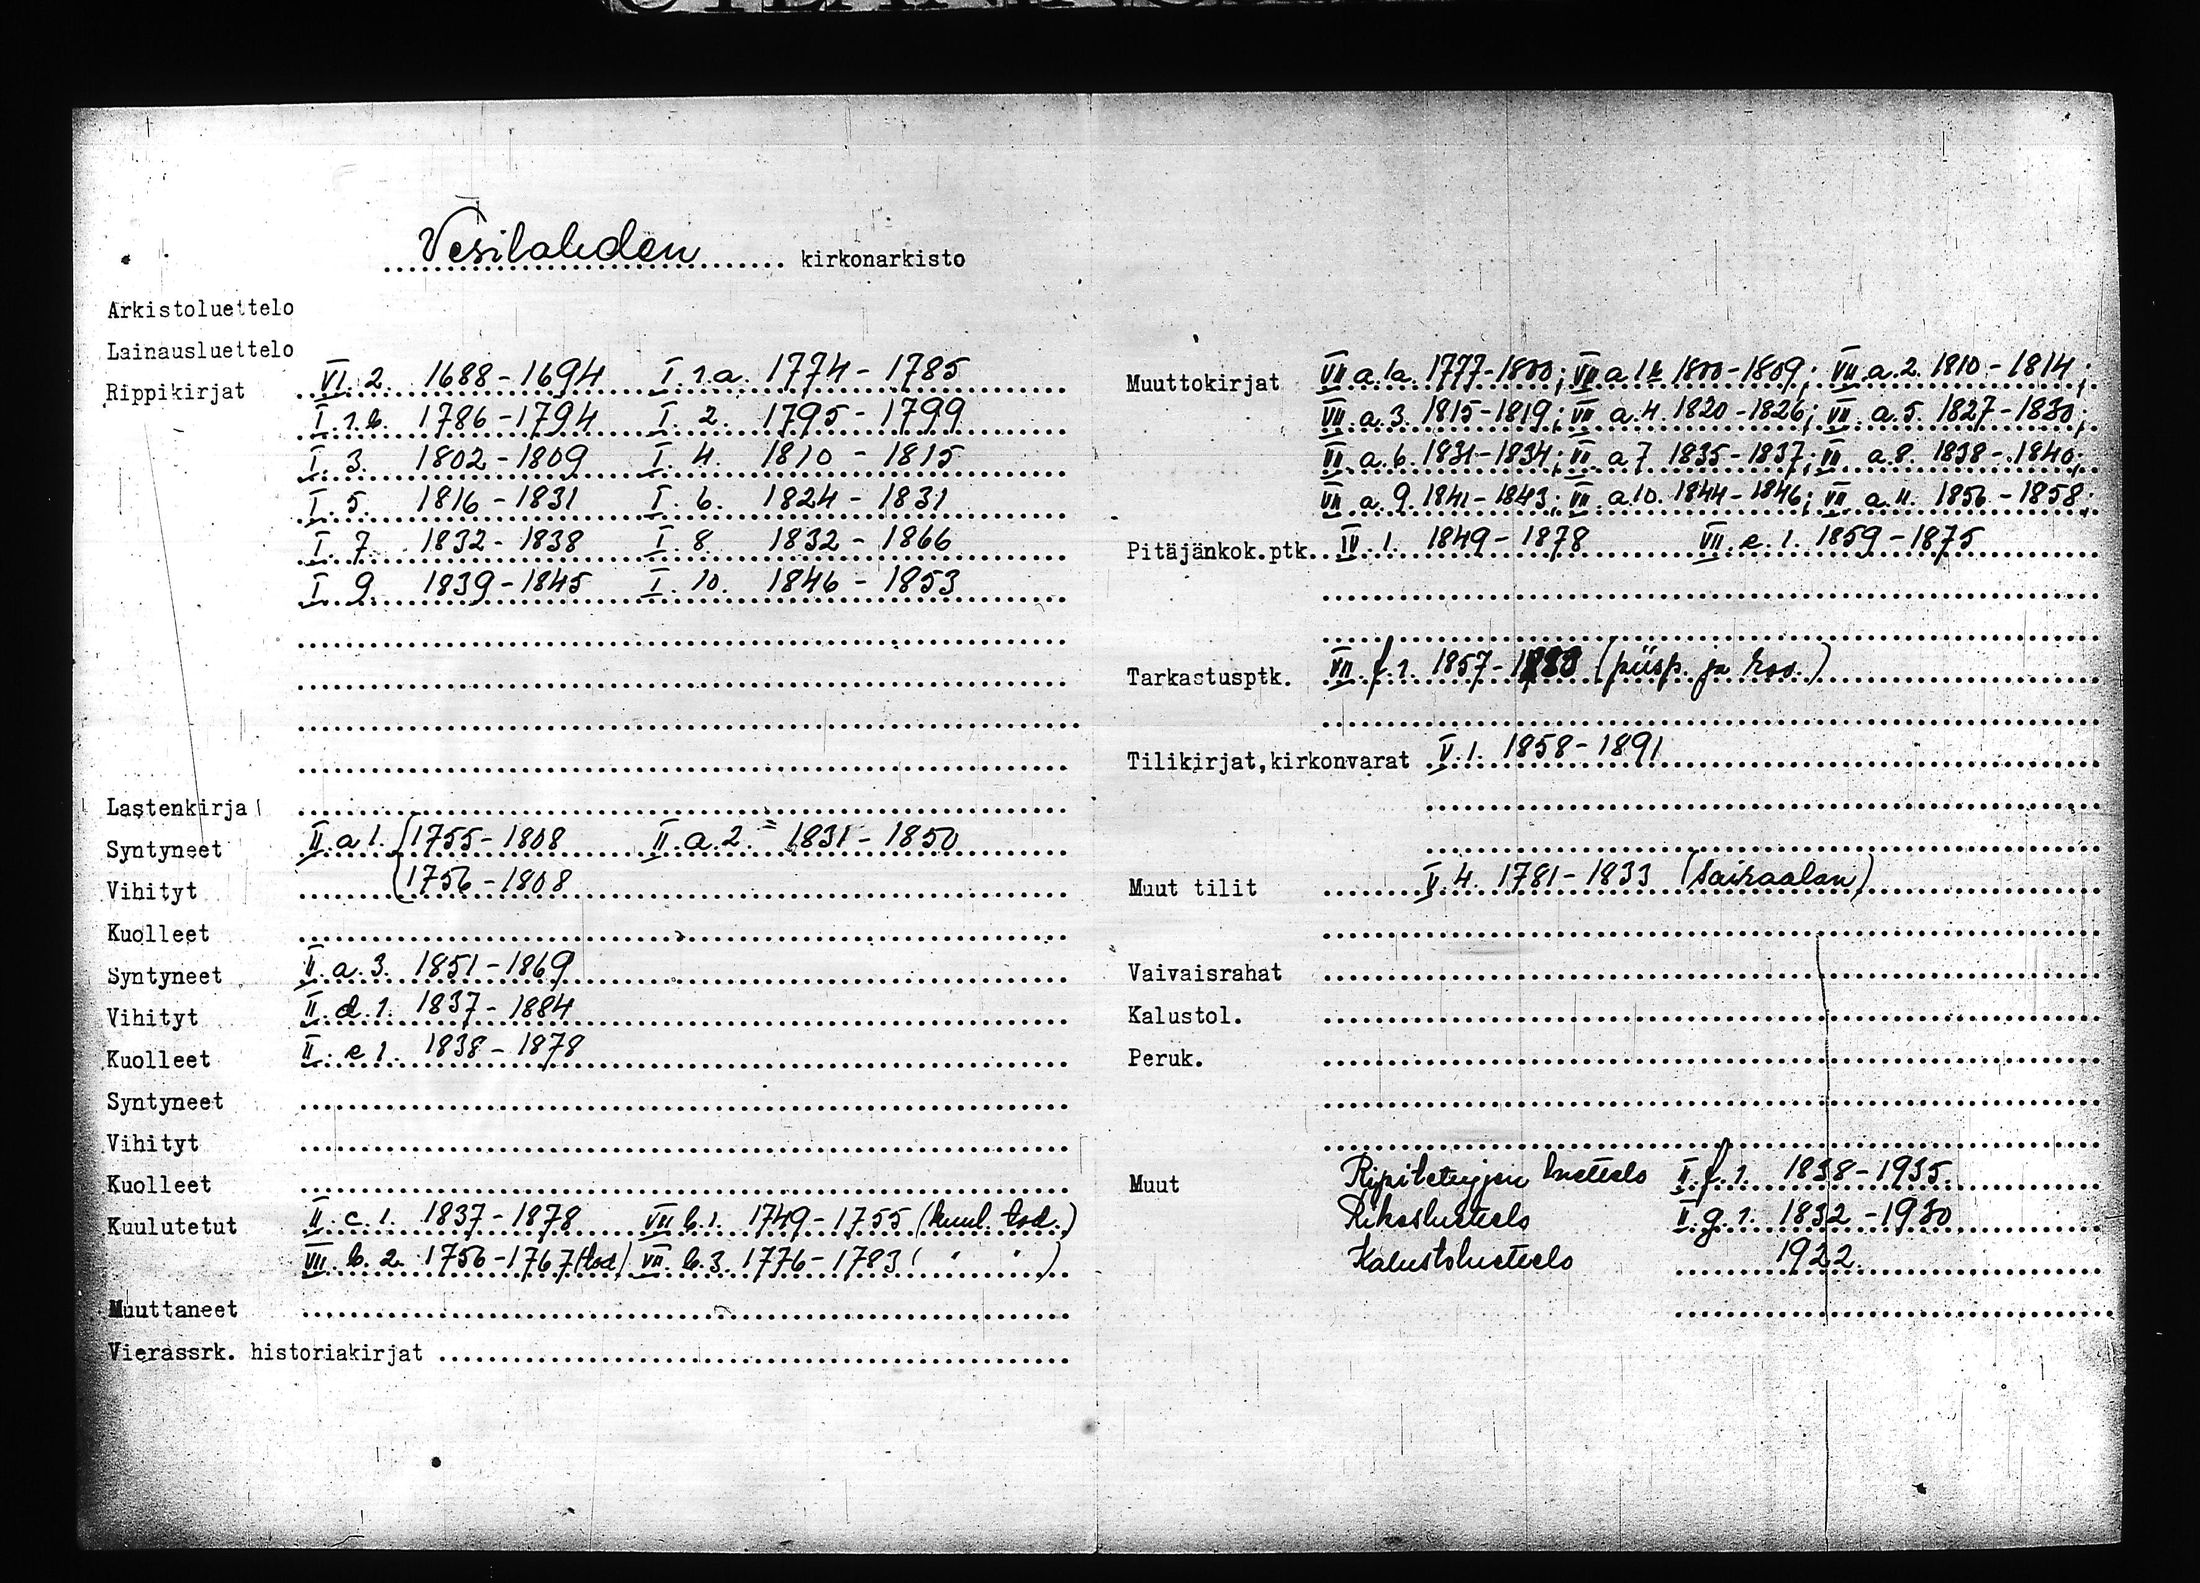 Vesilahden kirkonarkisto
Arkistoluettelo
Lainausluettelo
Rippikirjat VI. 2. 1688-1694 I. 1.a. 1774-1785
I. 1.b. 1786-1794 I. 2. 1795-1799
I. 3. 1802-1809 I. 4. 1810-1815
I. 5. 1816-1831 I. 6. 1824-1831
I. 7. 1832-1838 I. 8. 1832-1866
I. 9. 1839-1845 I. 10. 1846-1853
Lastenkirja
Syntyneet II. a 1. 1755-1808 II. a. 2. = 1831-1850
Vihityt 1756-1808
Kuolleet
Syntyneet II. a. 3. 1851-1869
Vihityt II. d. 1. 1837-1884
Kuolleet II. e 1. 1838-1878
Syntyneet
Vihityt
Kuolleet
Kuulutetut II. c. 1. 1837-1878 VII b. 1. 1749-1755 (kuul. tod.)
VII. b. 2. 1756-1767 (tod) VII. b. 3. 1776-1783 ( " " )
Muuttaneet
Vierassrk. historiakirjat
Muuttokirjat VII a. 1a. 1777-1800; VII a 1b 1800-1809; VII. a. 2. 1810-1814;
VII. a. 3. 1815-1819; VII a. 4. 1820-1826; VII. a. 5. 1827-1830;
VII a. 6. 1831-1834; VII. a 7 1835-1837; VII a. 8. 1838-1840;
VII a. 9. 1841-1843; VII. a. 10. 1844-1846; VII a. 11. 1856-1858;
Pitäjänkok.ptk. IV. 1. 1849-1878 VII. e. 1. 1859-1875
Tarkastusptk. VII. f. 1. 1857- (piisp. ja rov.)
Tilikirjat,kirkonvarat V. 1. 1858-1891
Muut tilit V. 4. 1781-1833 (Sairaalan)
Vaivaisrahat
Kalustol.
Peruk.
Muut luettelo II. f. 1. 1838-1935
Rikosluettelo II. g. 1. 1832-1930
Kalustoluettelo 1922.